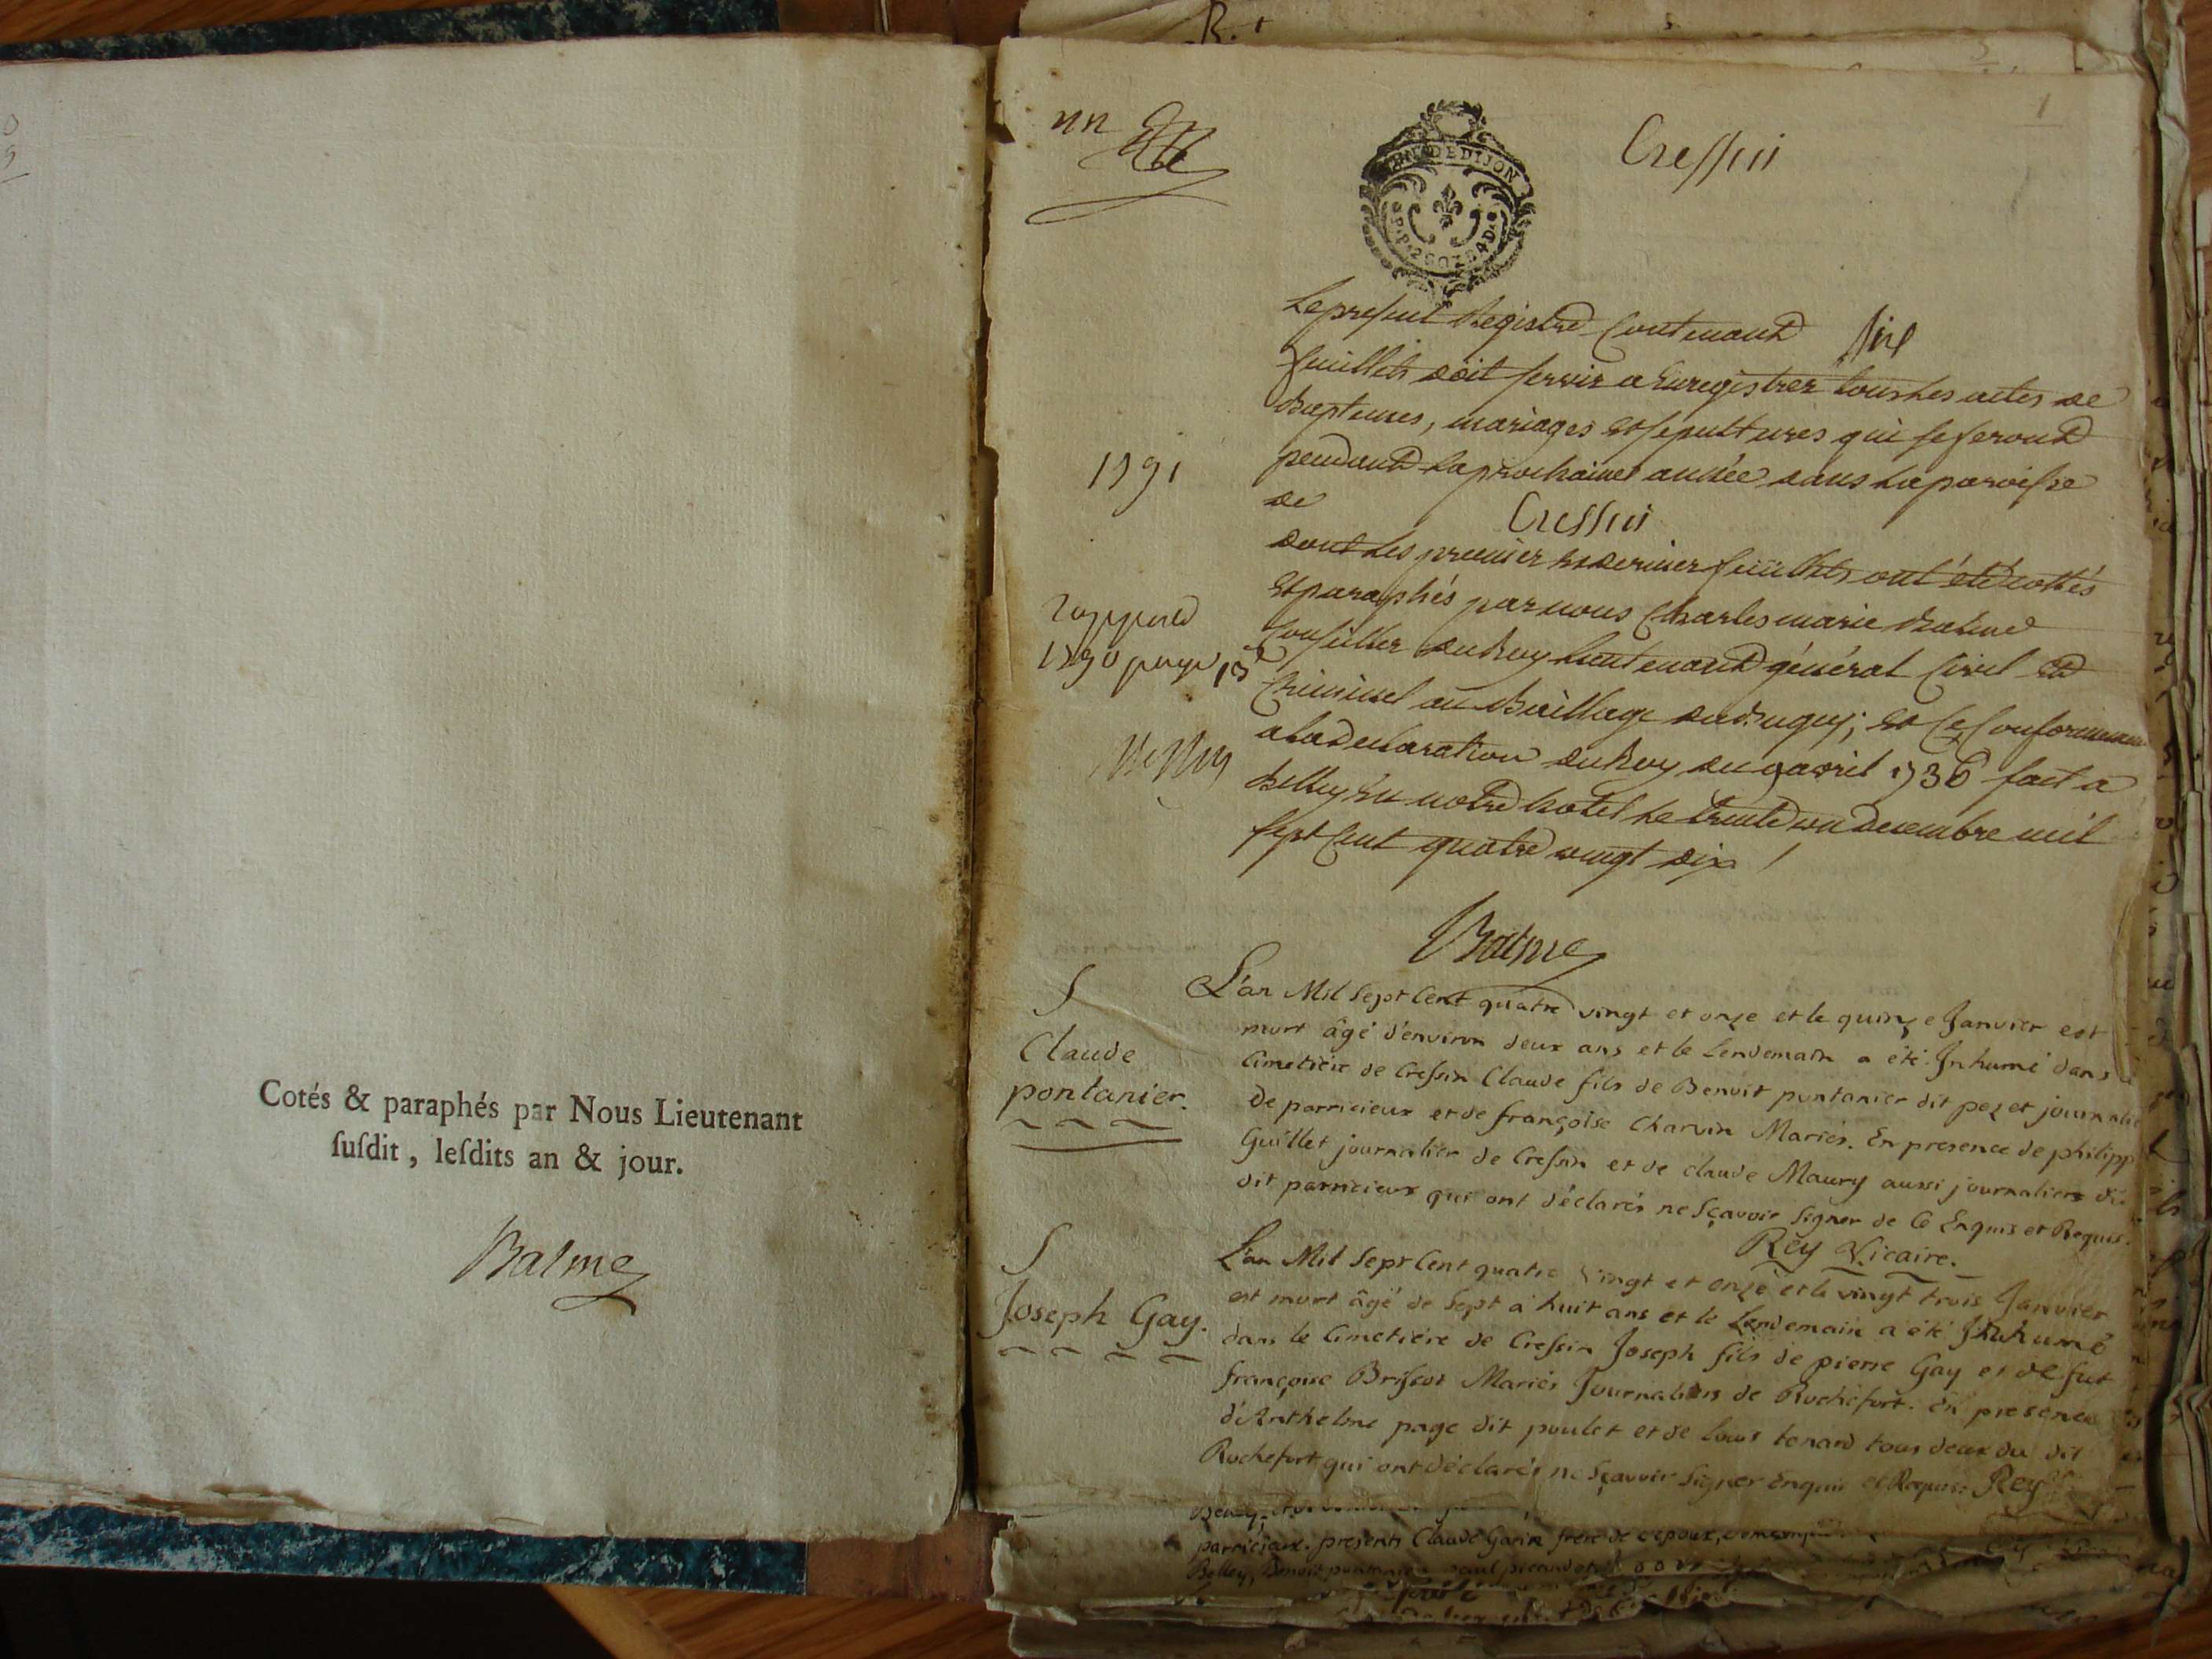 Cotés & paraphés par Nous Lieutenant
ſuſdit, leſdits an & jour.
Balme
1
Cressin
GEN DE DIJON
Le present Registre Contenant six
feuillets doit servir a Enregistrer tous les actes de
Baptemes, mariages et sepultures qui se feront
pendant la prochaine année dans la paroisse
de Cressin
dont les premier et dernier feuillets ont été cottés
et paraphés par nous Charles marie Balme
Conseiller du Roy Lieutenant général Civil et
Criminel au Bailliage du Bugey; et ce Conformement
a la declaration du Roy du 9 avril 1736 fait a
Belley En notre hotel Le trente un decembre mil
sept Cent quatre vingt dix
Balme
1791
Rapport
1790 page 13
S
Claude
pontanier.
L'an Mil Sept Cent quatre vingt et onze et le quinze Janvier est
mort âgé d'environ deux ans et le Lendemain a été Inhumé dans
Cimetiére de Cressin Claude fils de Benoit pontanier dit pezet journalier
De parricieux et de françoise Charvin Mariés. En presence de philipp
Guillet journalier de Cressin et de claude Maury aussi journaliers du
dit parricieux qui ont déclarés ne Sçavoir Signer de Ce Enquis et Requis.
Rey Vicaire.
S
Joseph Gay.
L'an Mil Sept Cent quatre vingt et onze et le vingt trois Janvier
est mort âgé de Sept a huit ans et le Lendemain a été Inhumé
dans le Cimetiére de Cressin Joseph fils de pierre Gay et defut
françoise Mariés Journaliers de Rochefort. En presence
d'Anthelme page dit poulet et de Louis tenard tous deux du dit
Rochefort qui ont déclarés ne Sçavoir Signer Enquis et Requis. Rey
parricieux. presents Claude Garin frere de l'epoux,
Belley, Benoit pontanier